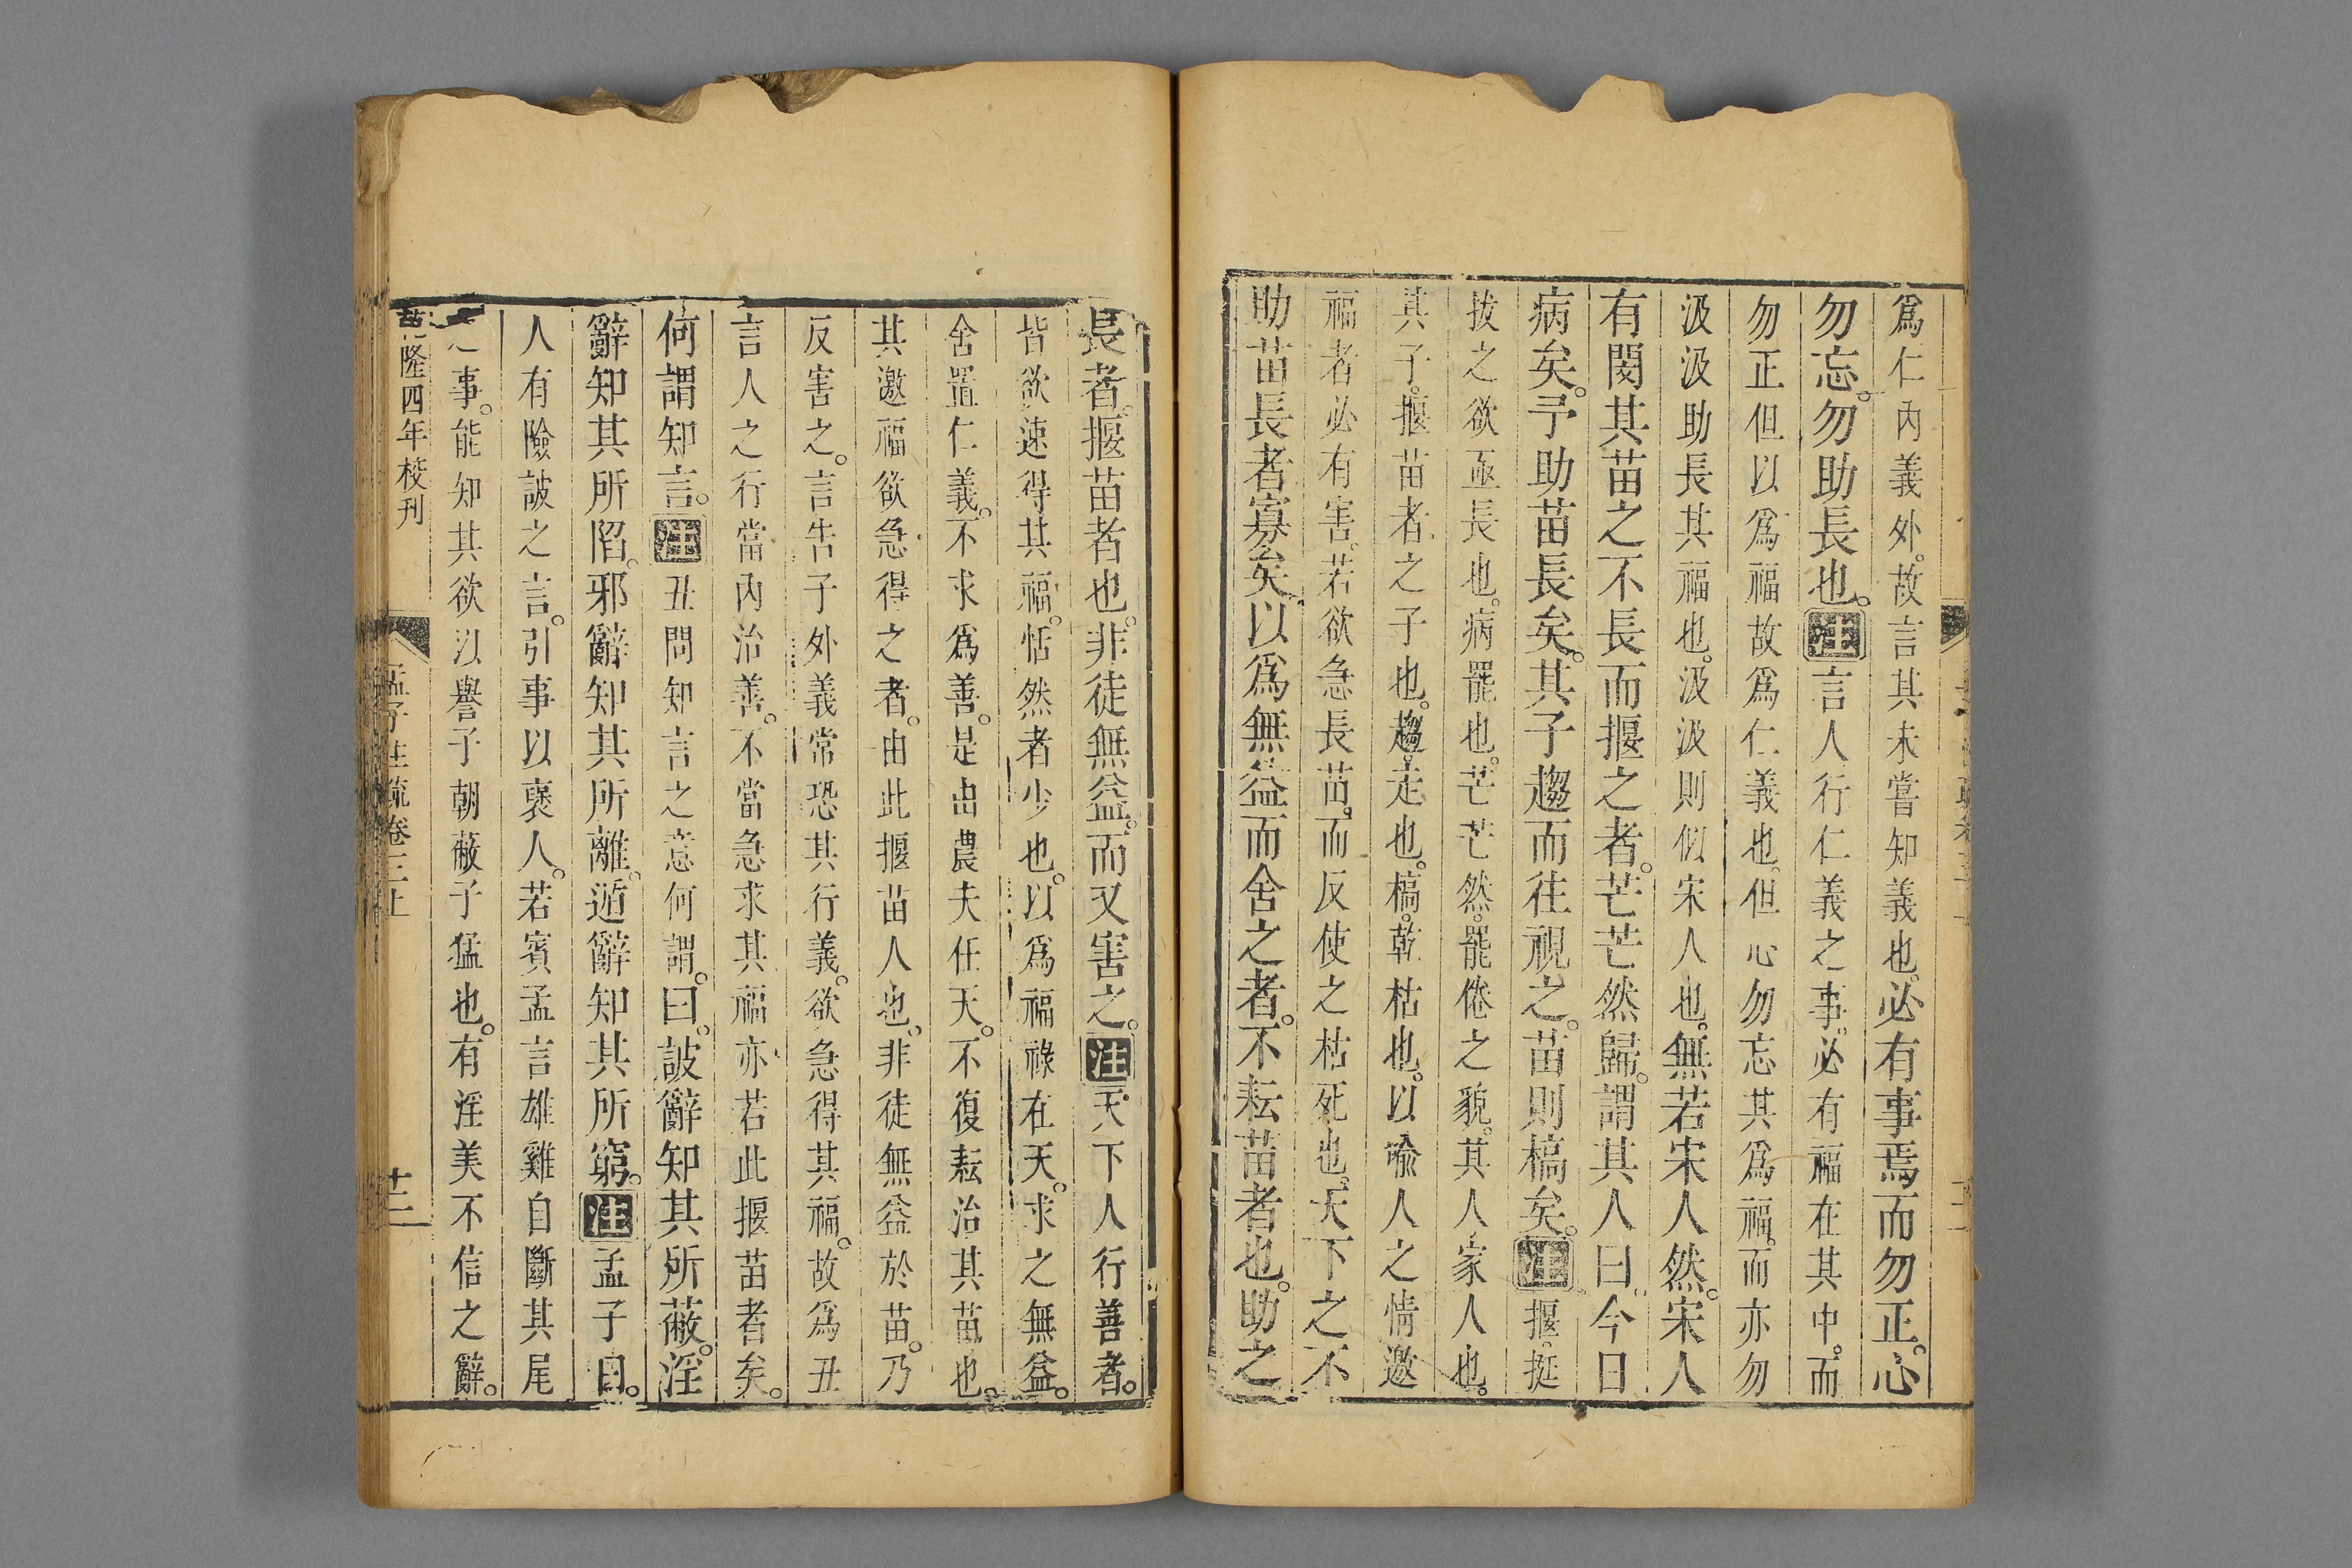 爲仁內義外。故言其未嘗知義也。必有事焉而勿正。心
勿忘。勿助長也。注言人行仁義之事。必有福在其中。而
勿正但以爲福故爲仁義也。但心勿忘其爲福。而亦勿
汲汲助長其福也。汲汲則似宋人也。無若宋人然。宋人
有閔其苗之不長而揠之者。芒芒然歸。謂其人曰。今日
病矣。予助苗長矣。其子趨而往視之。苗則槁矣。注揠。挺
拔之欲亟長也。病罷也。芒芒然。罷倦之貌。其人家人也。
其子。揠苗者之子也。趨。走也。槁。乾枯也。以喻人之情邀
福者必有害。若欲急長苗。而反使之枯死也。天下之不
助苗長者寡矣。以爲無益而舍之者。不耘苗者也。助之
長者。揠苗者也。非徒無益。而又害之。注天下人行善者。
皆欲速得其福。恬然者少也。以爲福祿在天。求之無益。
舍置仁義。不求爲善。是由農夫任天。不復耘治其苗也。
其邀福欲急得之者。由此揠苗人也。非徒無益於苗。乃
反害之。言告子外義常恐其行義。欲急得其福。故爲丑
言人之行當內治善。不當急求其福亦若此揠苗者矣。
何謂知言。注丑問知言之意何謂。曰。詖辭知其所蔽。淫
辭知其所陷。邪辭知其所離。遁辭知其所窮。注孟子曰。
人有險詖之言。引事以襃人。若賓孟言雄雞自斷其尾
之事。能知其欲以譽子朝蔽子猛也。有淫美不信之辭。
乾隆四年校刊
孟子注疏卷三上